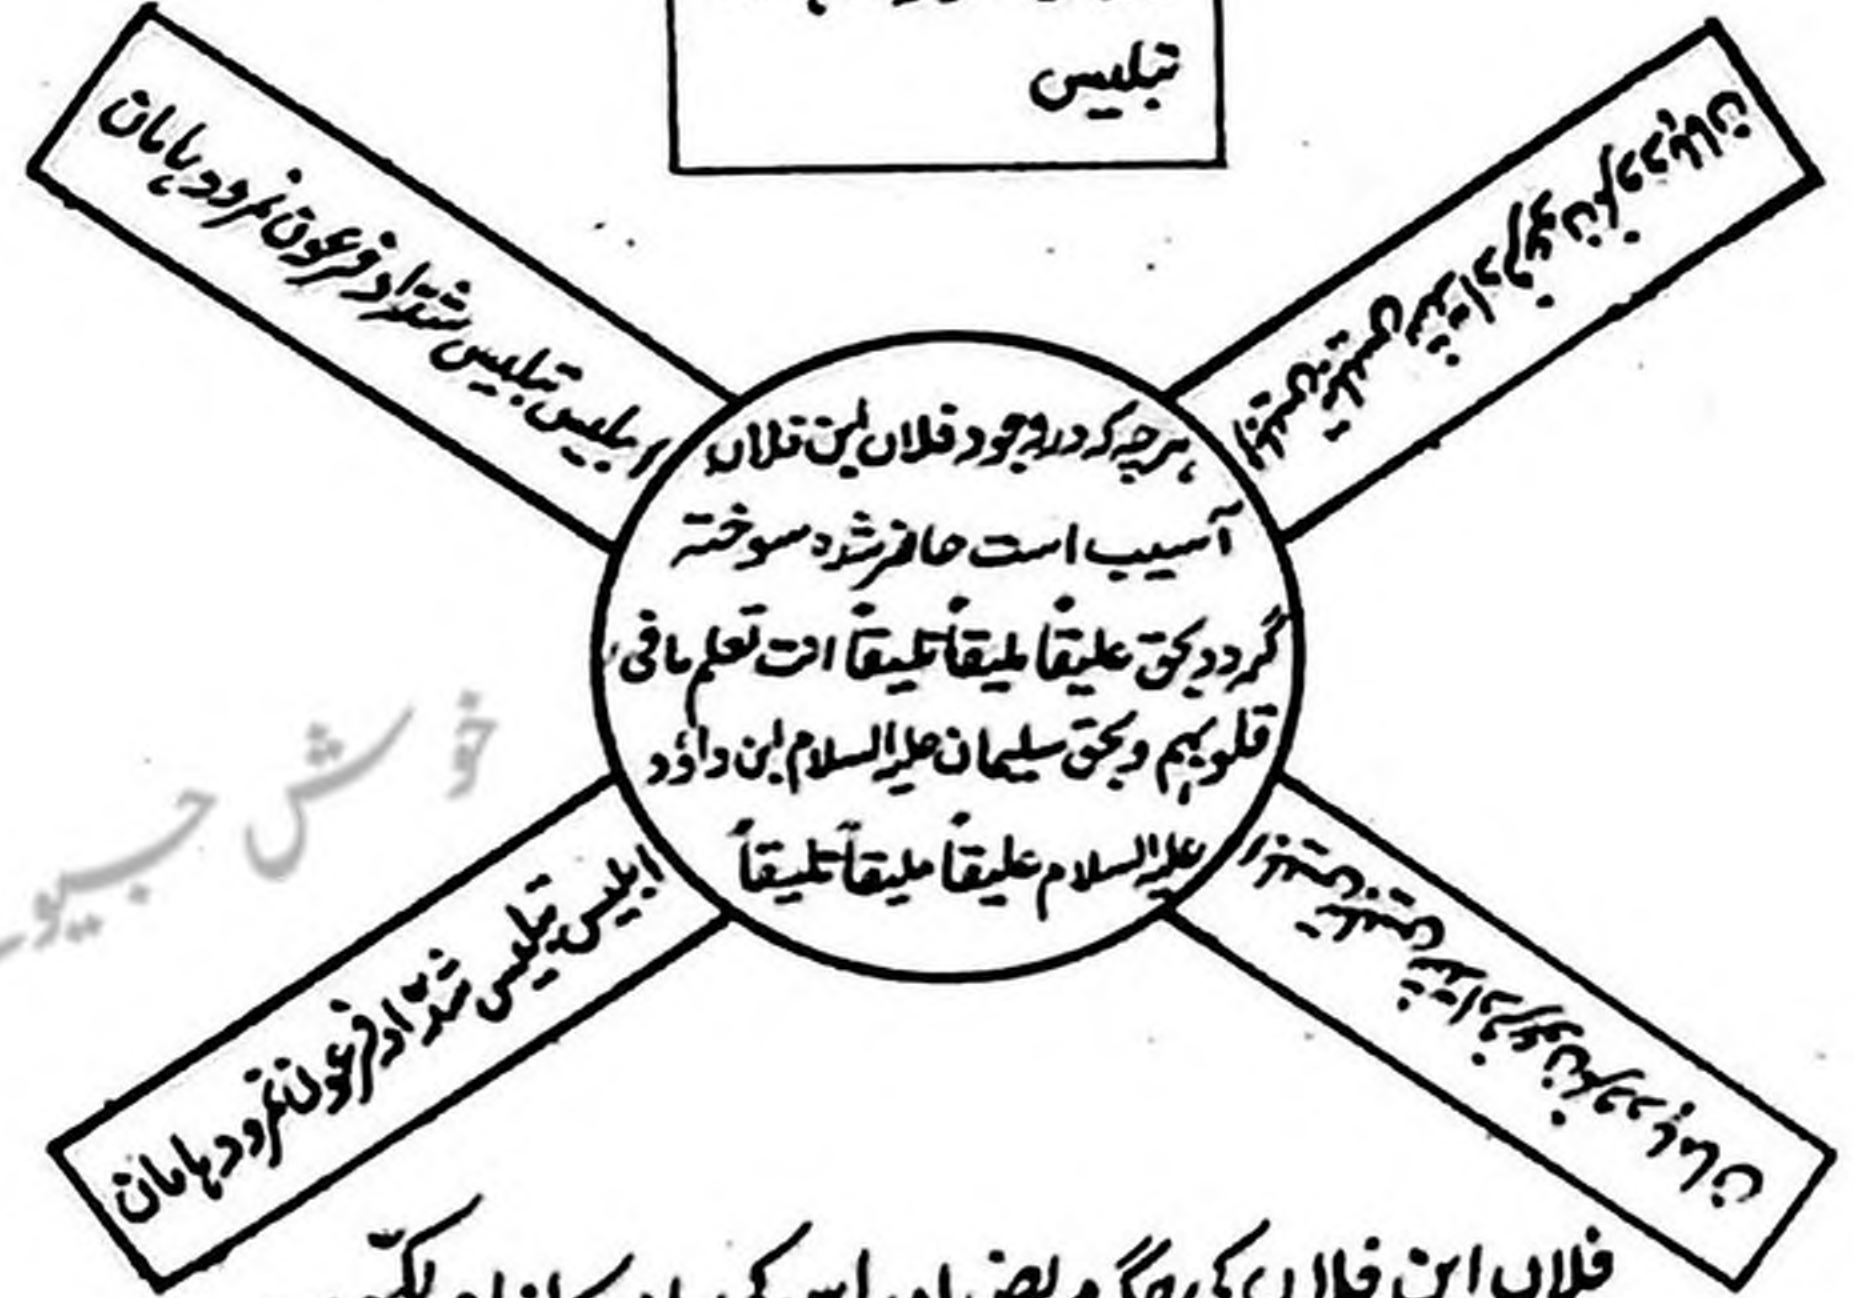 تبلیس
ابلیس تبلیس شدّاد فرعون نمرود ہامان
ابلیس تبلیس شدّاد فرعون نمرود ہامان
ہرچہ کہ در وجود فلاں ابن فلاں
آسیب است حاضر شدہ سوختہ
گردد بحق علیقاً ملیقاً تلیقاً انت تعلم مافی
قلوبہم و بحق سلیمان علیہ السلام ابن داؤد
علیہ السلام علیقاً ملیقاً تلیقاً
ابلیس تبلیس شدّاد فرعون نمرود ہامان
ابلیس تبلیس شدّاد فرعون نمرود ہامان
خوش جیو
فلاں ابن فلاں کی جگہ مریض اور اس کی